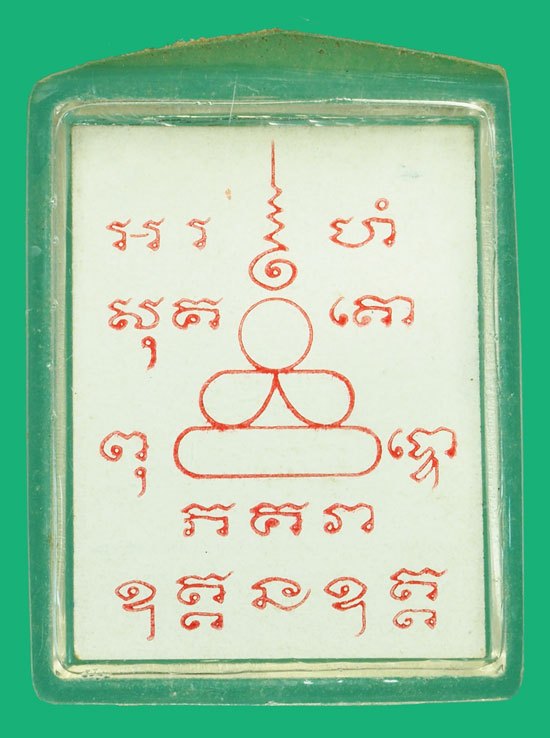 អ រ ហំ
សុ គ តោ
ពុ ទ្ធោ
ភ គ វា
ឧ ត្ត ឧ ត្ត